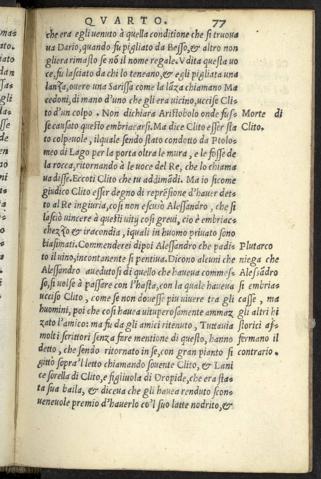 QVARTO. 77
che era egli venuto à quella conditione che si truoua
ua Dario, quando fu pigliato da Besso, & altro non
gliera rimasto se nō il nome regale. Vdita questa uo
ce, fu lasciato da chi lo teneano, & egli pigliata una
lanza, ouere una Sarissa come la lāza chiamano Ma
cedoni, di mano d'uno che gli era uicino, uccise Cli
to d'un colpo. Non dichiara Aristobolo onde fus
se causato questo embriacarsi. Ma dice Clito esser sta
to colpeuole, ilquale sendo stato condotto da Ptolo
meo di Lago per la porta oltre la mura, e le fosse de
la rocca, ritornando à le uoce del Re, che lo chiama
ua disse. Eccoti Clito che tu addimādi. Ma io sicome
giudico Clito esser degno di reprēsione d'hauer det
to al Re ingiuria, cosi non escuso Alessandro, che si
lasciò uincere à questi uitij cosi greui, cio è embriac-
chezzo & iracondia, iquali in huomo priuato sono
biasimati. Commenderei dipoi Alessandro che padis
to il uino, incontanente si pentiua. Dicono alcuni che
Alessandro auedutosi di quello che haueua commes-
so, si uolse à passare con l'hasta, con la quale haueua
ucciso Clito, come se non douesse piu uiuere tra gli
huomini, poi che cosi haueua uituperosamente ammaz
zato l'amico: ma fu da gli amici ritenuto, Tuttauia
molti scrittori senza fare mentione di questo, hanno
detto, che sendo ritornato in se, con gran pianto si
gittò sopra'l letto chiamando souente Clito, & Lani
ce sorella di Clito, e figliuola di Dropide, che era sta-
ta sua baila, & diceua che gli hauea renduto scon-
ueneuole premio d'hauerlo co'l suo latte nodrito, &
Morte di
Clito.
Plutarco
niega che
Alesādro
si embria-
casse, ma
gli altri hi
storici af-
fermano il
contrario.